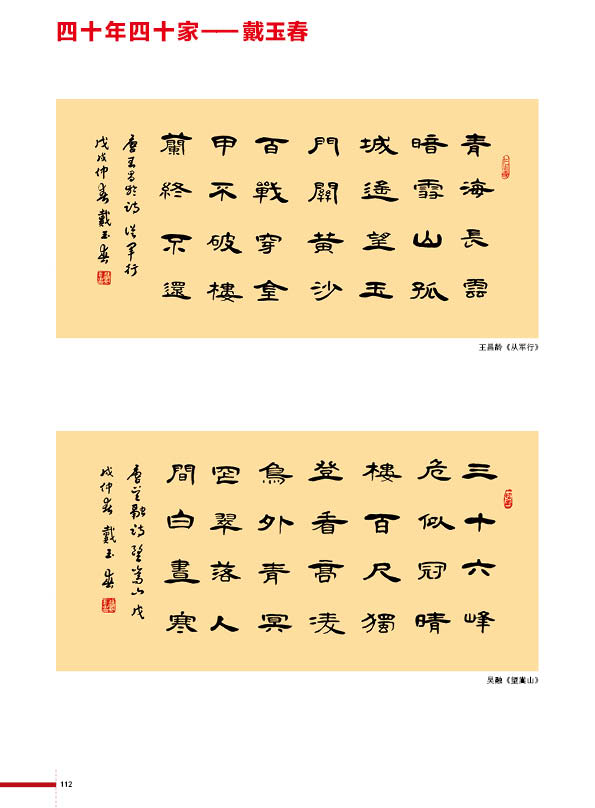 四十年四十家——戴玉春
青海長雲
暗雪山孤
城遙望玉
門關黄沙
百戰穿金
甲不破樓
蘭終不還
唐王昌齡詩從軍行
戊戌仲春戴玉春
王昌龄《从军行》
三十六峰
危似冠晴
樓百尺獨
登看高凌
鳥外青冥
窄翠落人
間白晝寒
唐吴融詩望嵩山戊
戌仲春戴玉春
吴融《望嵩山》
112